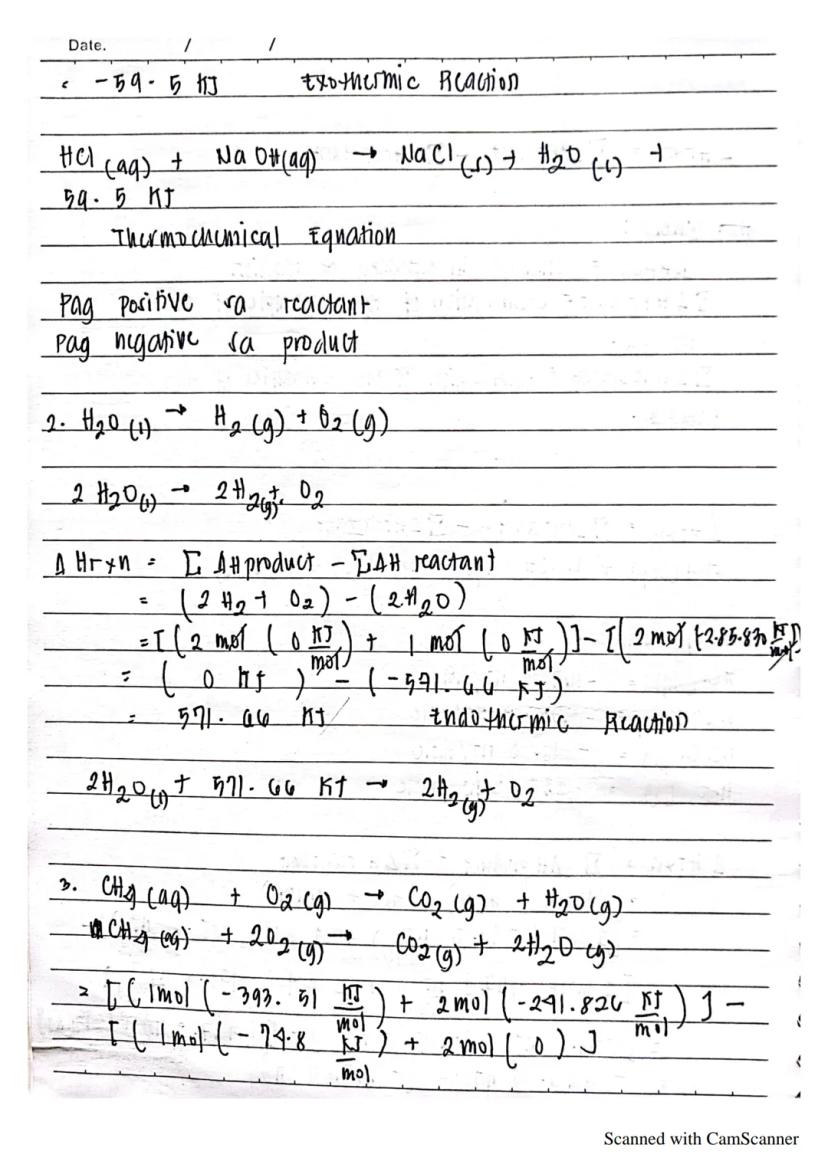 Date. / /
= -59.5 KJ Exothermic Reaction
HCl (aq) + NaOH(aq) → NaCl (s) + H2O (l) +
59.5 KJ
Thermochemical Equation
Pag positive sa reactant
Pag negative sa product
2. H2O (l) → H2 (g) + O2 (g)
2 H2O (l) → 2H2(g) + O2
Δ Hrxn = Σ ΔH product - ΣΔH reactant
= (2 H2 + O2) - (2H2O)
= [(2 mol (0 KJ/mol) + 1 mol (0 KJ/mol)] - [(2 mol (-285.830 KJ/mol)]
= (0 KJ) - (-571.66 KJ)
= 571.66 KJ Endothermic Reaction
2H2O (l) + 571.66 KJ → 2H2 (g) + O2
3. CH4 (aq) + O2 (g) → CO2 (g) + H2O (g)
CH4 (aq) + 2O2 (g) → CO2 (g) + 2H2O (g)
= [(1mol (-393.51 KJ/mol) + 2mol (-241.826 KJ/mol)] -
[(1mol (-74.8 KJ/mol) + 2mol (0).]
Scanned with CamScanner